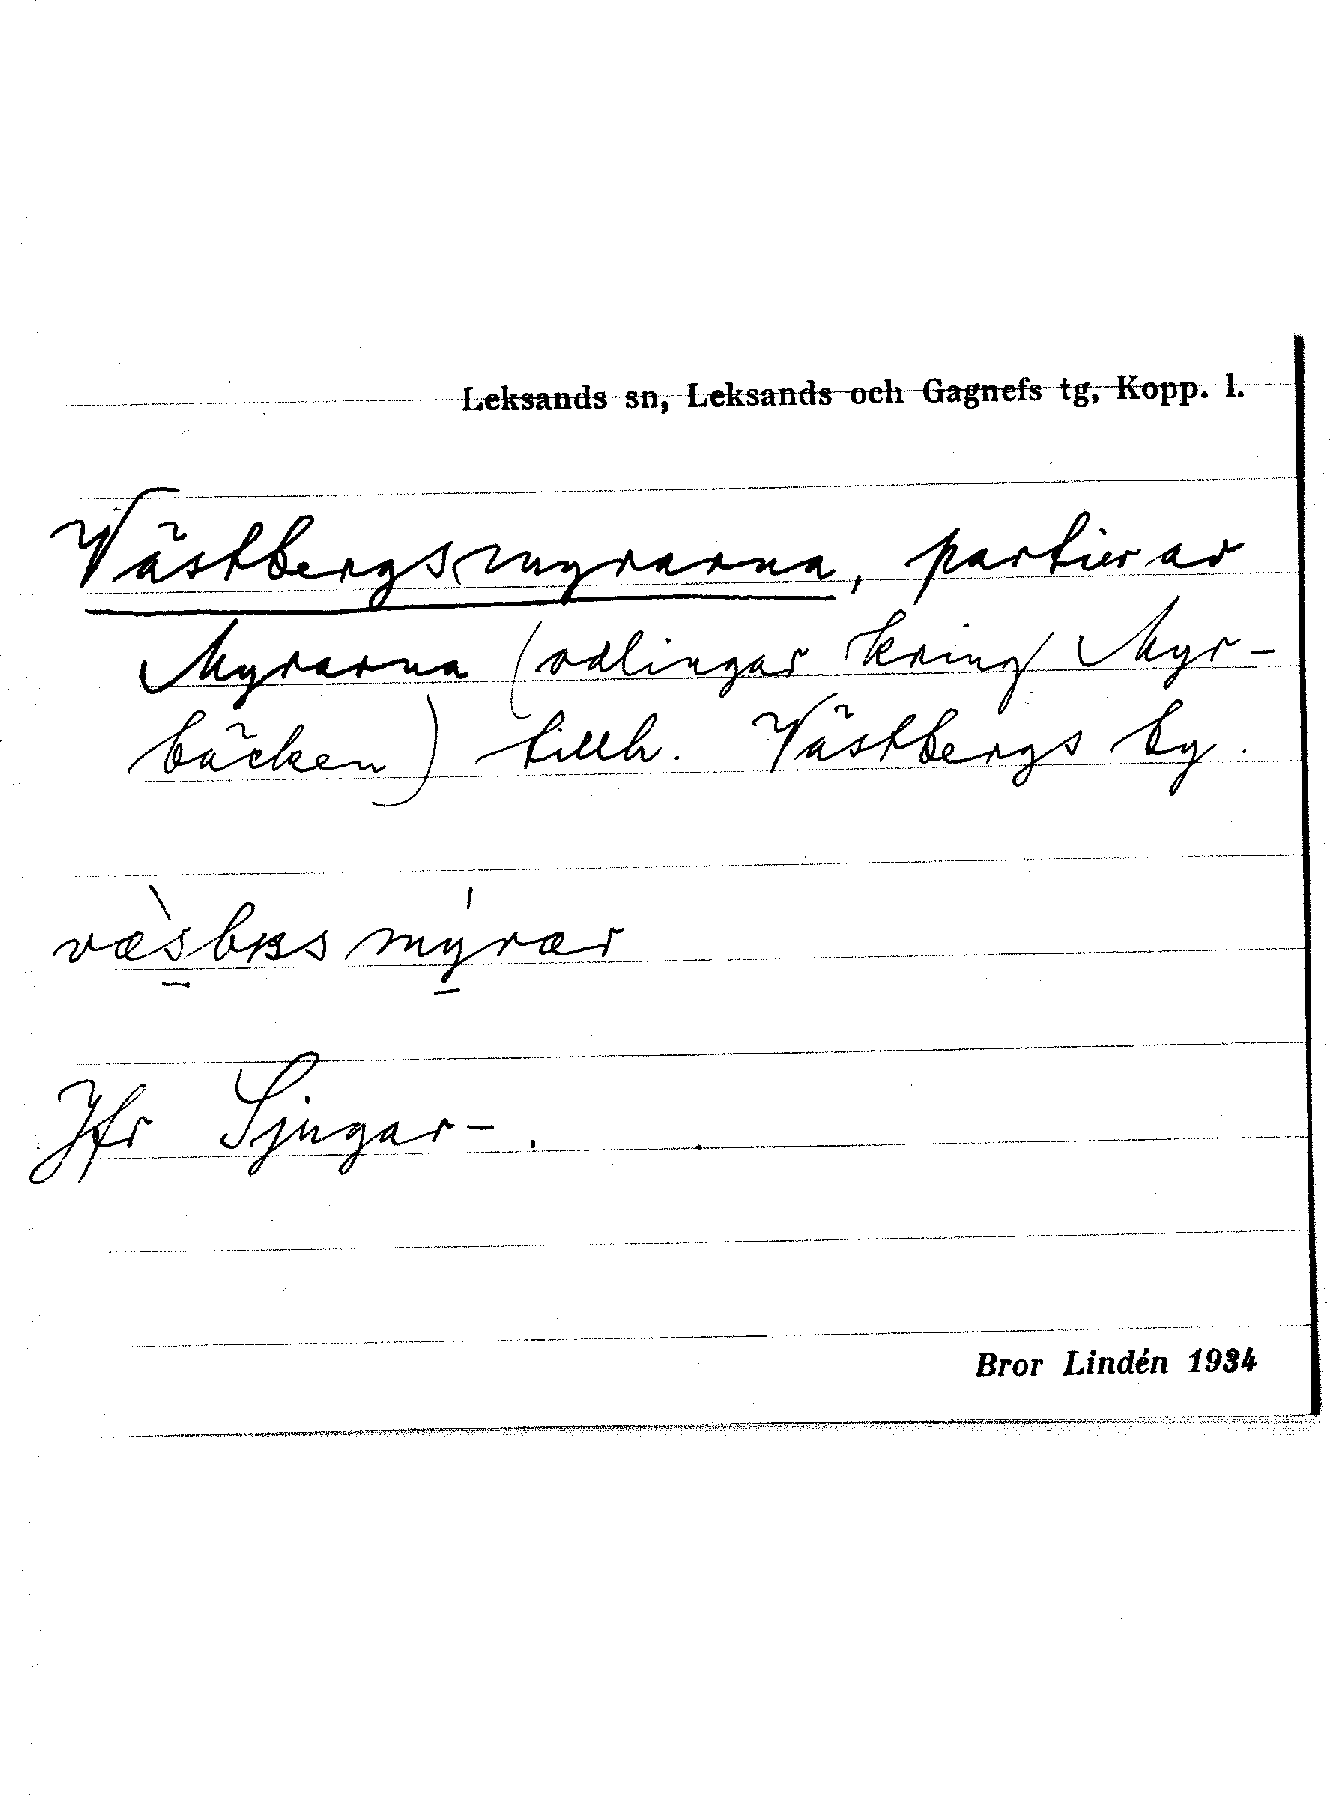 Leksands sn, Leksands och Gagnefs tg, Kopp. l.
Västbergsmyrarna, partier av
Myrarna (odlingar kring Myr-
bäcken) tillh. Västbergs by.
mýrær
Jfr Sjugar-.
Bror Lindén 1934